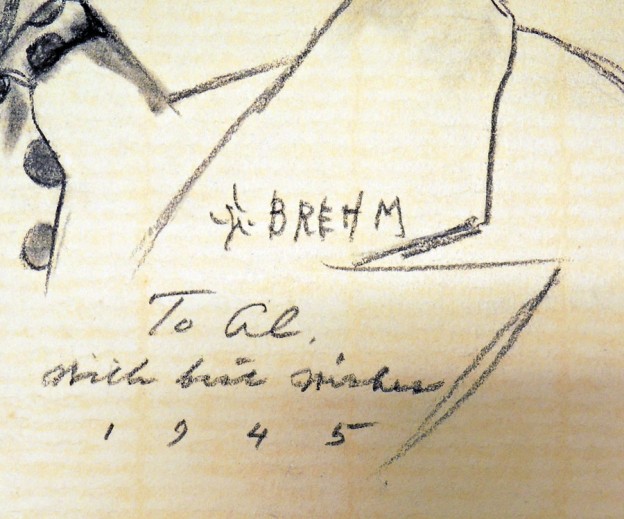 BREHM
To Al.
With best wishes
1945